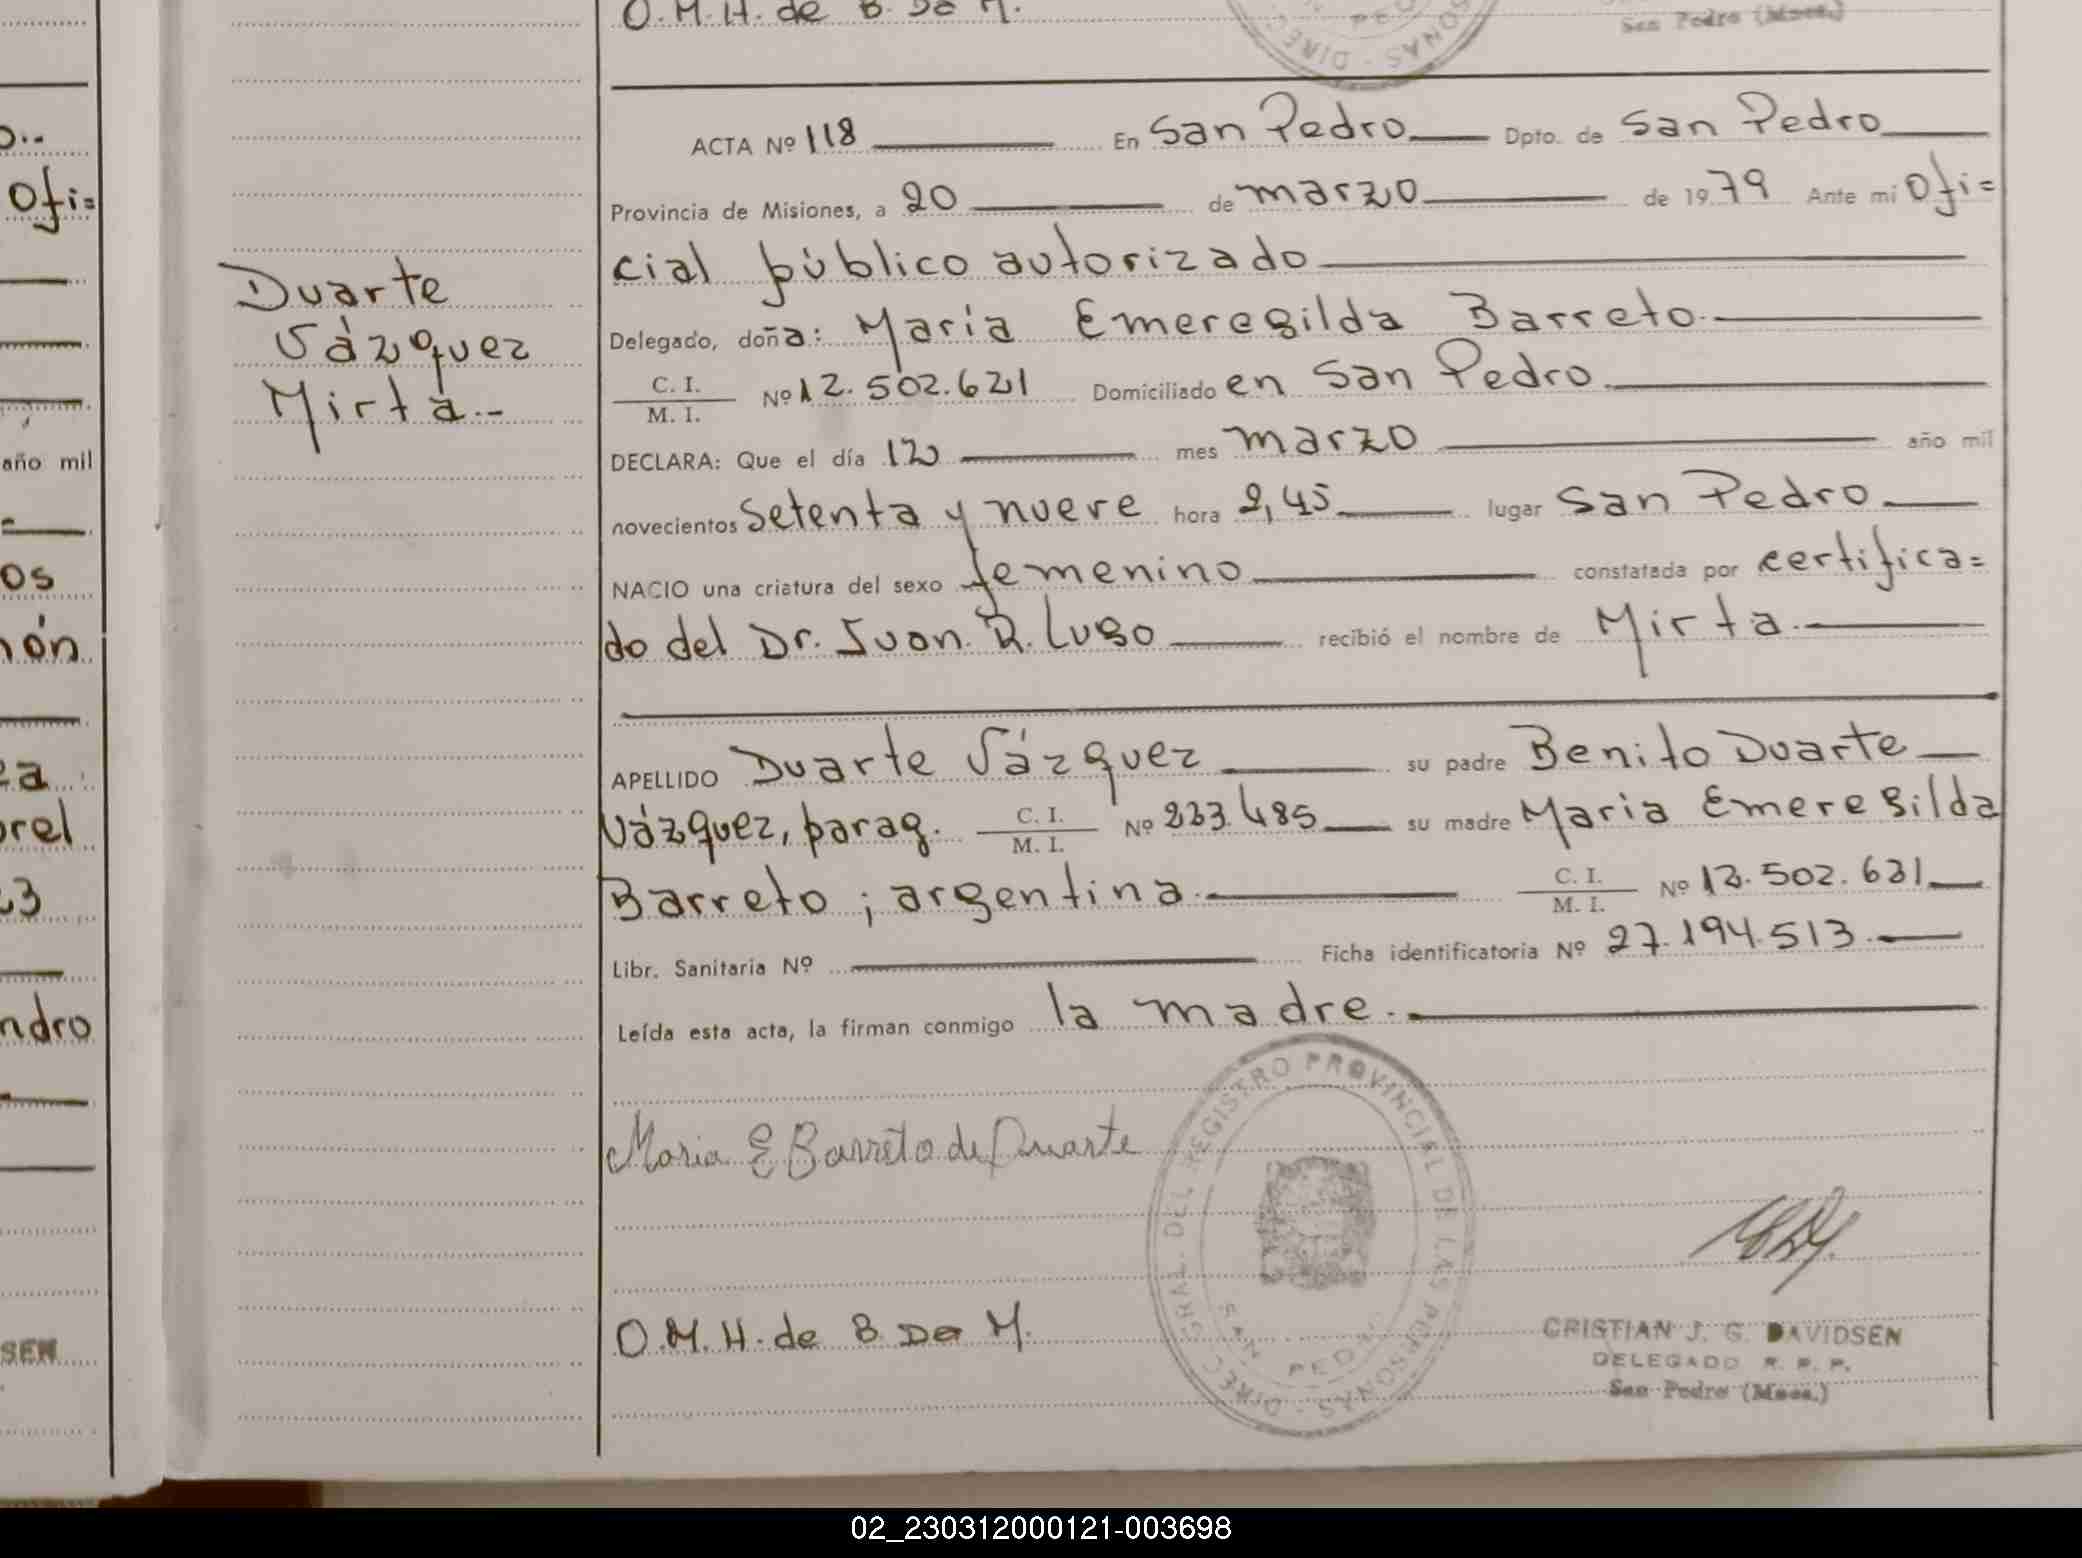 O.M.H. de B. De M.
San Pedro (Mnes.)
ACTA Nº 118 En San Pedro Dpto. de San Pedro
Provincia de Misiones, a 20 de marzo de 1979 Ante mi Ofi=
cial público autorizado
Delegado, doña: María Emeregilda Barreto.
C. I. / M. I. Nº 12.502.621 Domiciliado en San Pedro
DECLARA: Que el día 12 mes marzo año mil
novecientos setenta y nueve hora 2,45 lugar San Pedro
NACIO una criatura del sexo femenino constatada por certifica=
do del Dr. Juan. R. Lugo recibió el nombre de Mirta.
APELLIDO Duarte Vázquez su padre Benito Duarte
Vázquez, parag. C. I. / M. I. Nº 233.485 su madre Maria Emeregilda
Barreto; argentina. C. I. / M. I. Nº 12.502.621
Libr. Sanitaria Nº Ficha identificatoria Nº 27.194.513.
Leída esta acta, la firman conmigo la madre.
Maria E Barreto de Duarte
O.M.H. de B. De M.
DIREC. GRAL. DEL REGISTRO PROVINCIAL DE LAS PERSONAS
SAN PEDRO
CRISTIAN J. G. DAVIDSEN
DELEGADO R. P. P.
San Pedro (Mnes.)
Duarte
Vázquez
Mirta.-
Ofi=
año mil
os
ón
rel
23
ndro
SEN
02_230312000121-003698